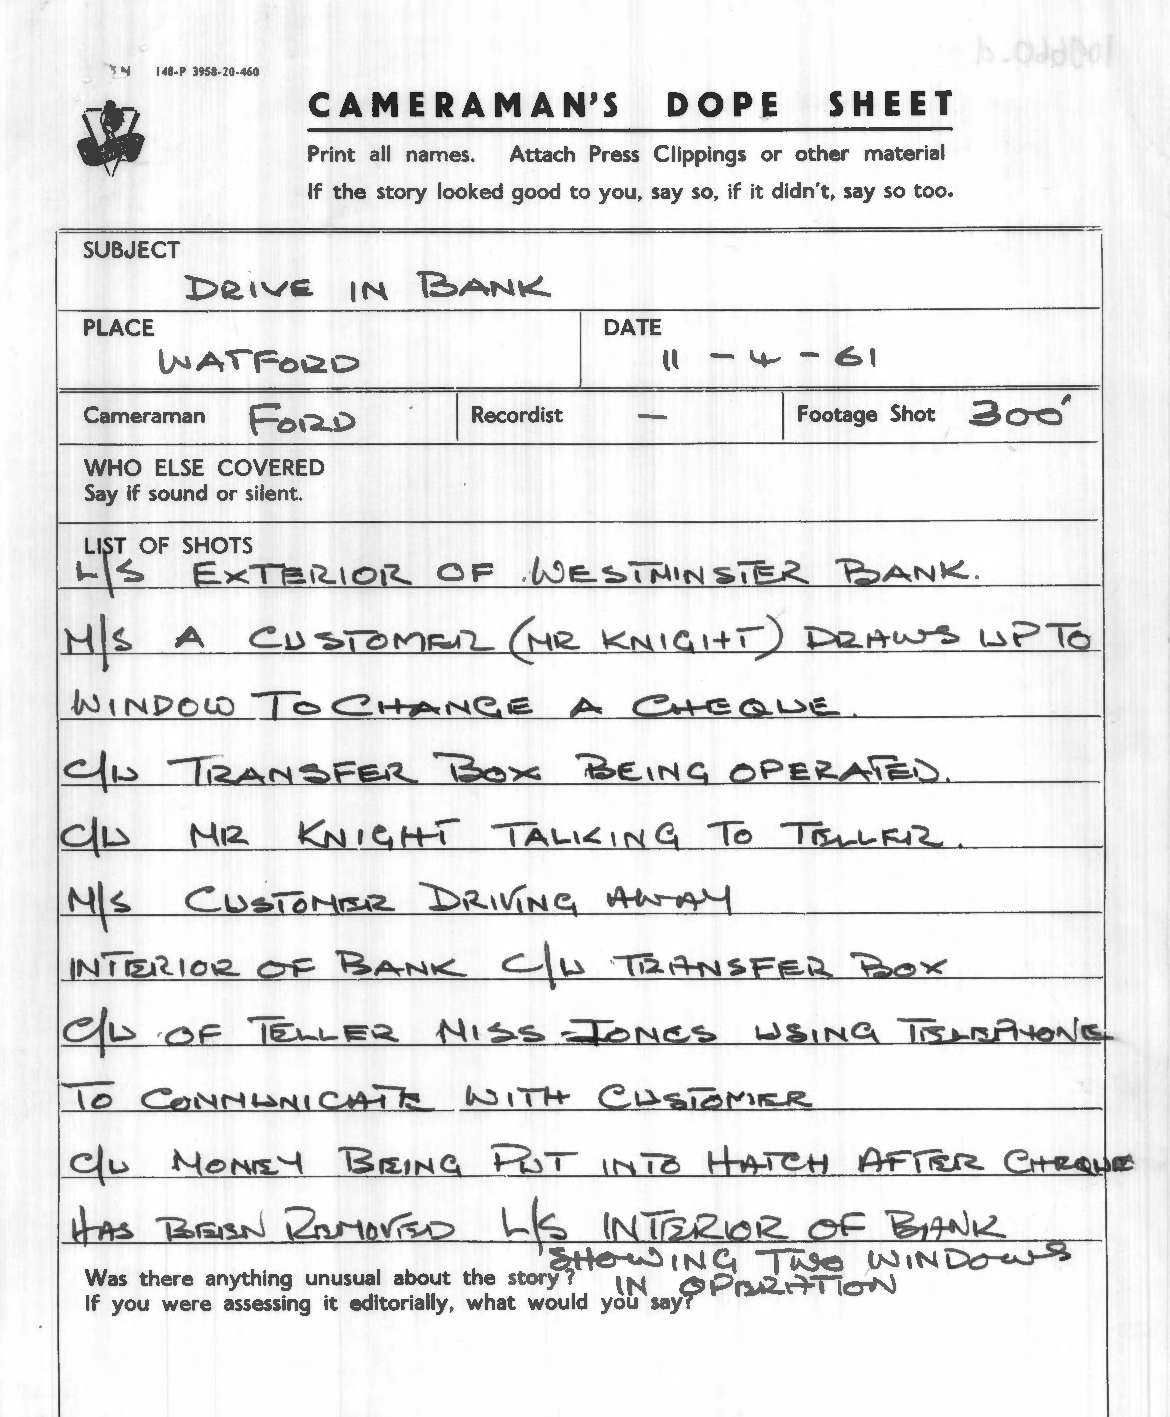 148-P 3958-20-460
CAMERAMAN'S DOPE SHEET
Print all names. Attach Press Clippings or other material
If the story looked good to you, say so, if it didn't, say so too.
SUBJECT
DRIVE IN BANK
PLACE
WATFORD
DATE
11 - 4 - 61
Cameraman FORD
Recordist —
Footage Shot 300'
WHO ELSE COVERED
Say if sound or silent.
LIST OF SHOTS
L/S EXTERIOR OF WESTMINSTER BANK.
M/S A CUSTOMER (MR KNIGHT) DRAWS UP TO
WINDOW TO CHANGE A CHEQUE.
C/U TRANSFER BOX BEING OPERATED.
C/U MR KNIGHT TALKING TO TELLER.
M/S CUSTOMER DRIVING AWAY
INTERIOR OF BANK C/U TRANSFER BOX
C/U OF TELLER MISS JONES USING TELEPHONE
TO COMMUNICATE WITH CUSTOMER
C/U MONEY BEING PUT INTO HATCH AFTER CHEQUE
HAS BEEN REMOVED L/S INTERIOR OF BANK
SHOWING TWO WINDOWS
IN OPERATION
Was there anything unusual about the story?
If you were assessing it editorially, what would you say?